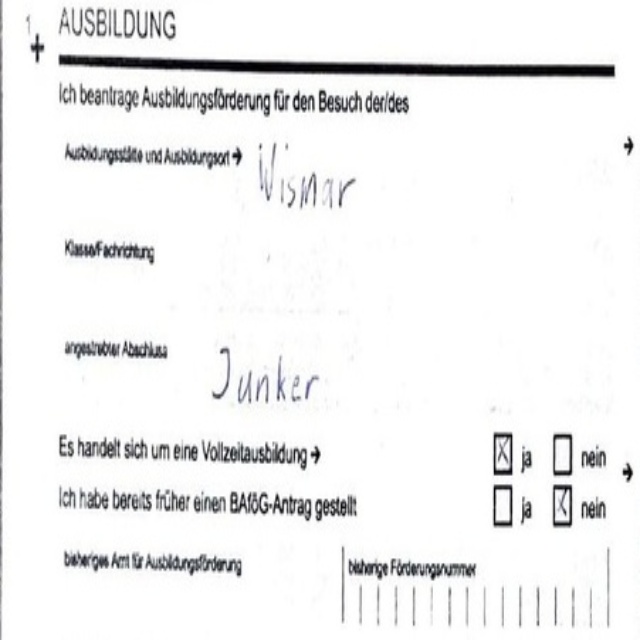 1
AUSBILDUNG
Ich beantrage Ausbildungsförderung für den Besuch der/des
Ausbildungsstätte und Ausbildungsort → Wismar
Klasse/Fachrichtung
angestrebter Abschluss Junker
Es handelt sich um eine Vollzeitausbildung → ja nein
Ich habe bereits früher einen BAföG-Antrag gestellt ja nein
bisheriges Amt für Ausbildungsförderung bisherige Förderungsnummer